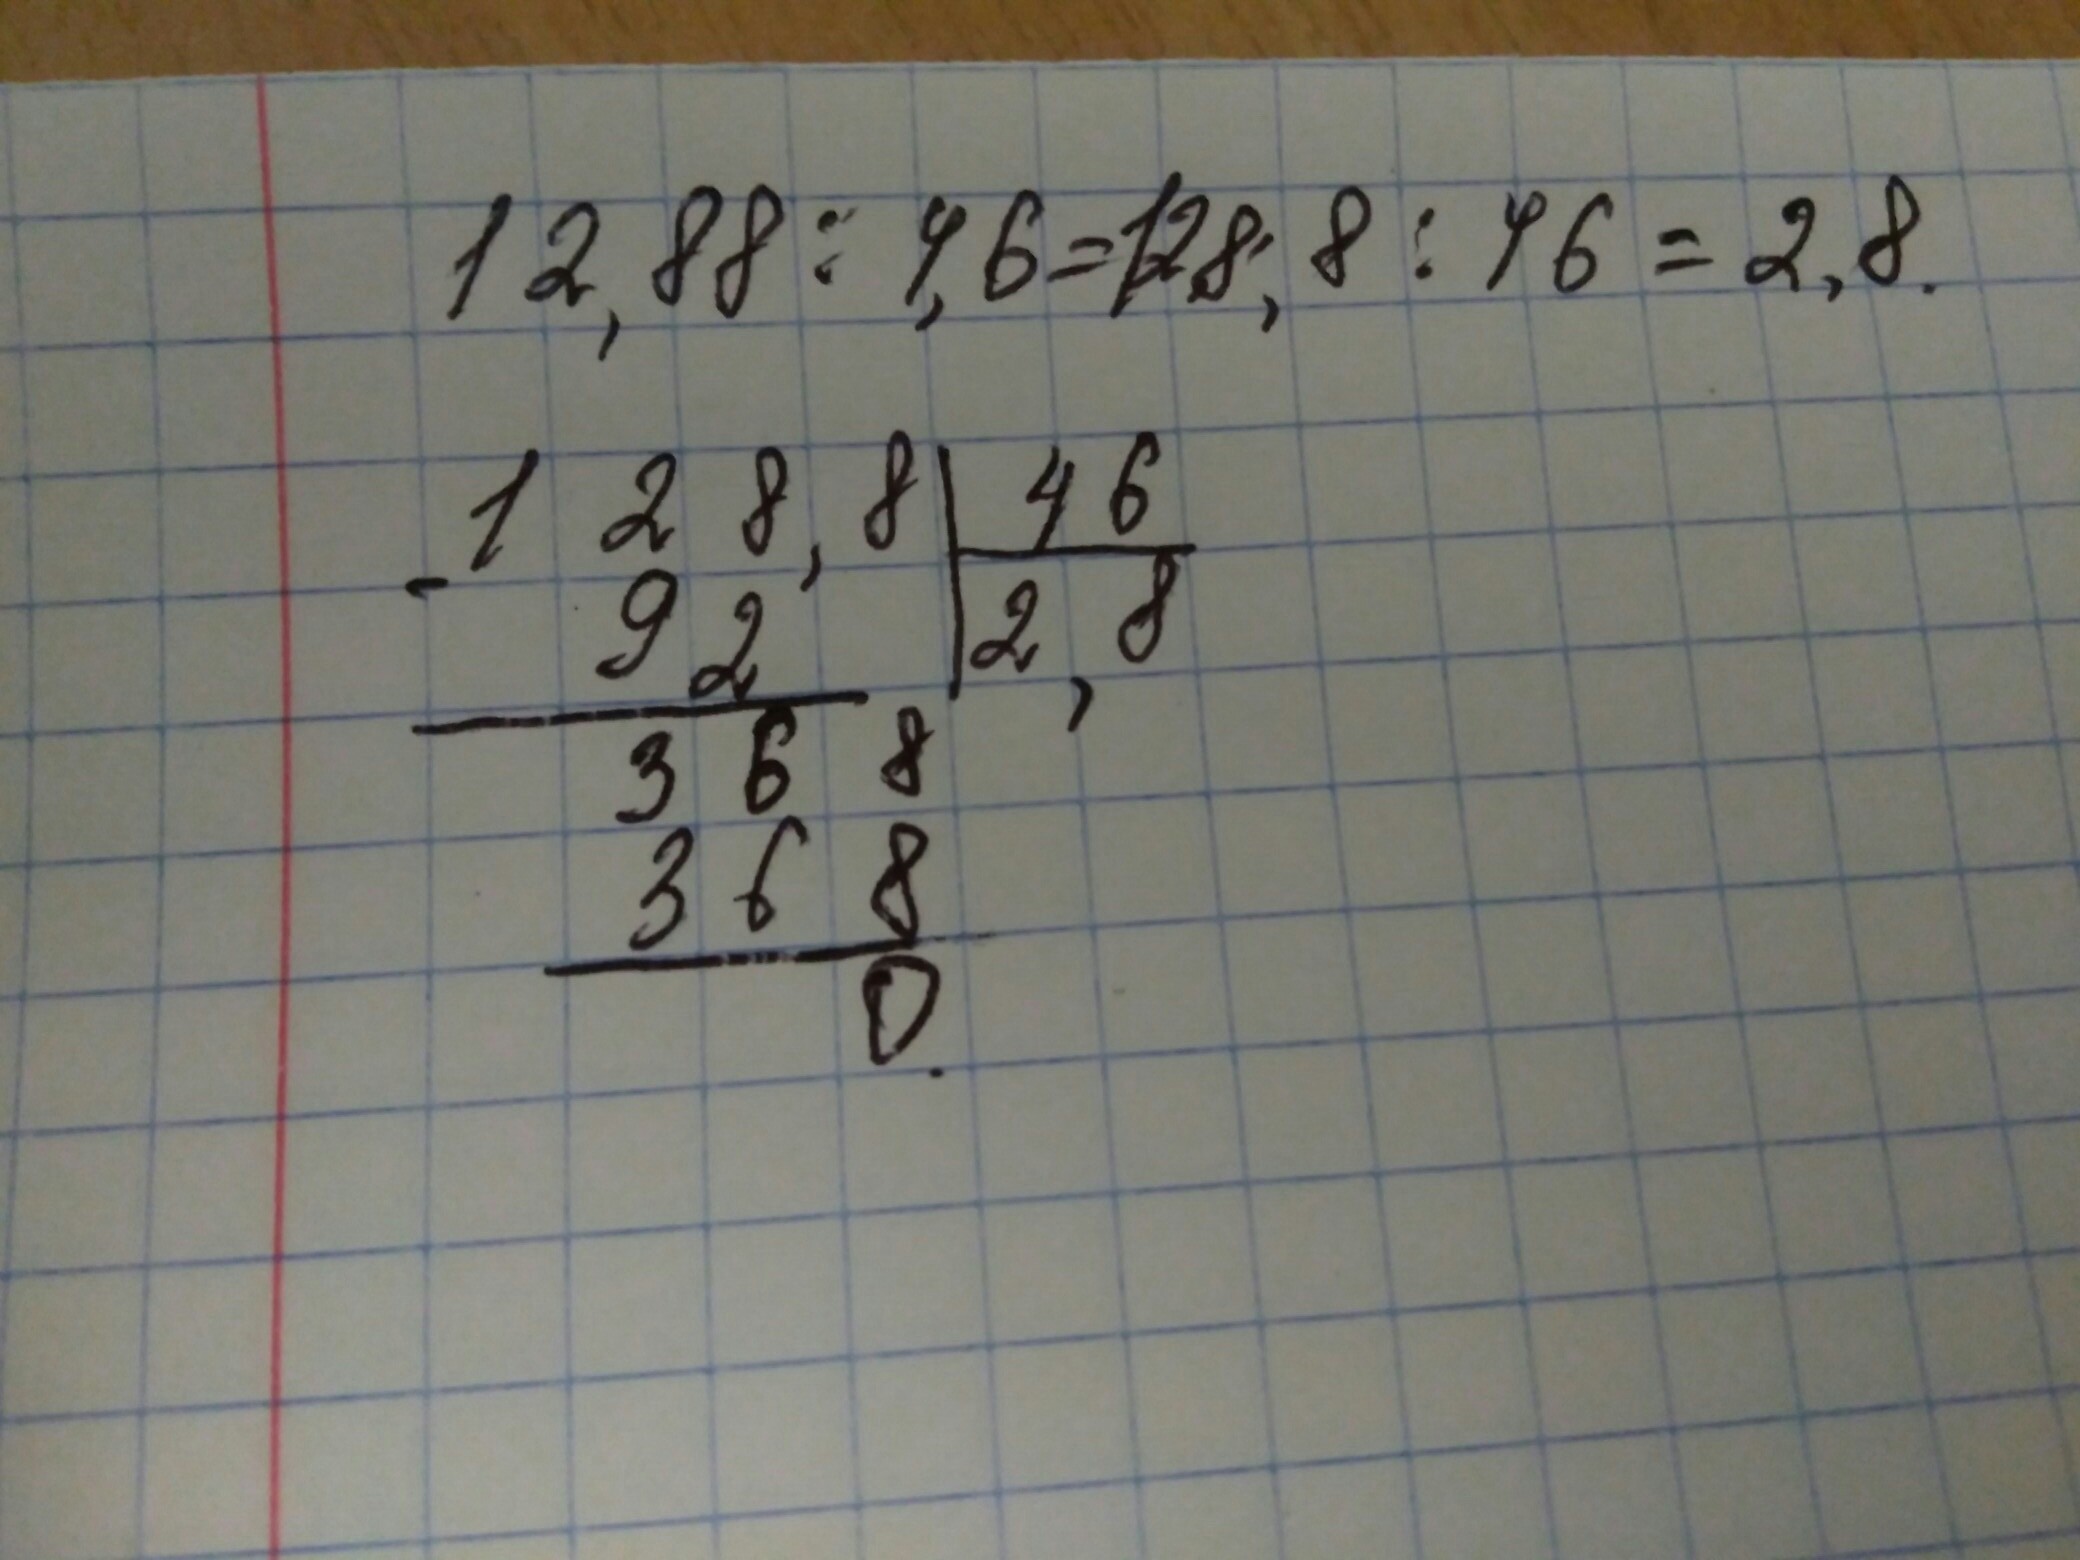 12,88 : 4,6 = 128,8 : 46 = 2,8.
- 128,8 | 46
92 | 2,8
368
368
0.